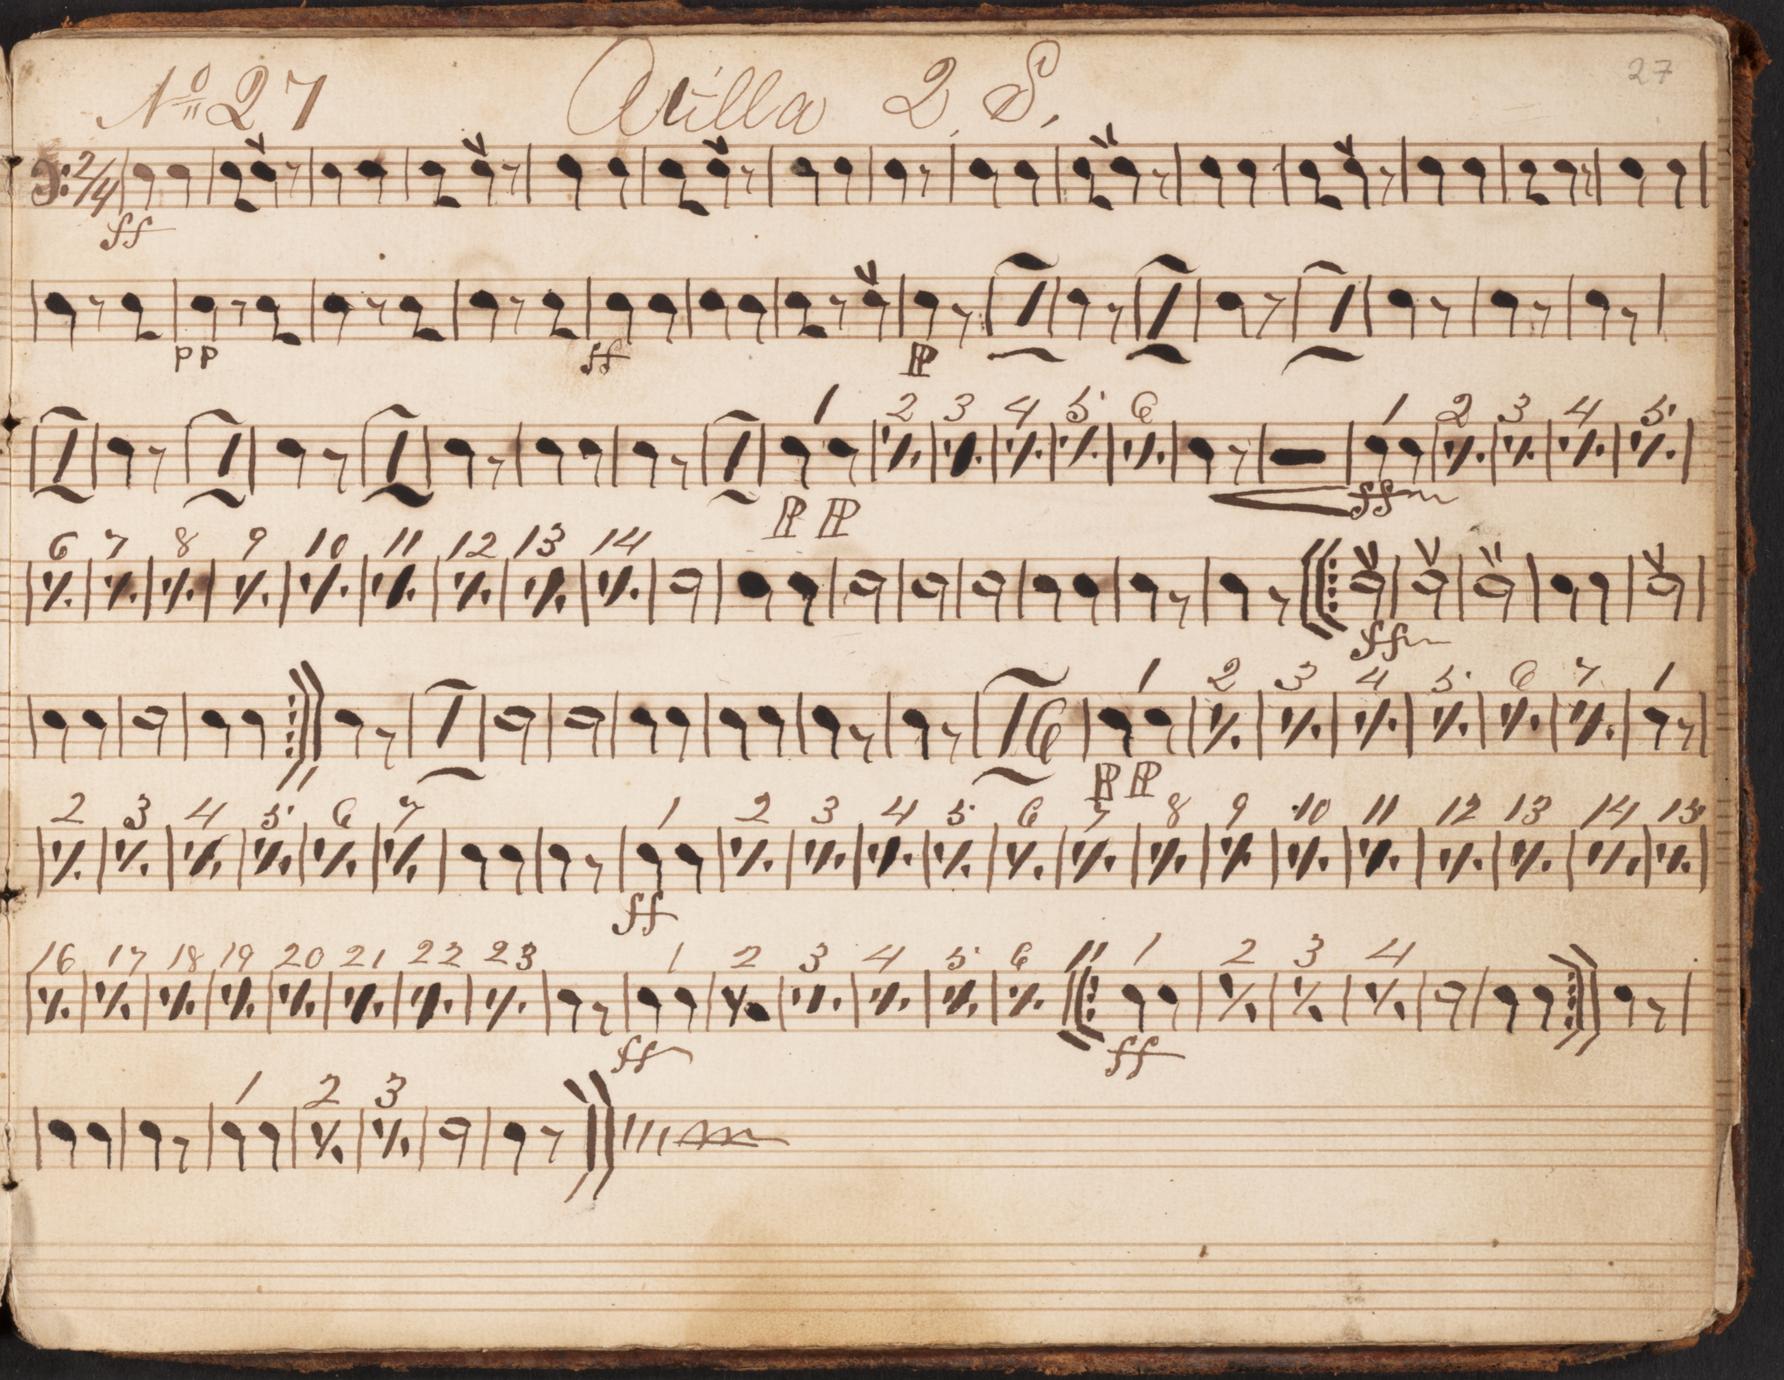 No 27 2. S. 27
2/4
ff
pp ff P
1 2 3 4 5 6 1 2 3 4 5
PP ff
6 7 8 9 10 11 12 13 14
ff
1 2 3 4 5 6 7 1
16
PP
2 3 4 5 6 7 1 2 3 4 5 6 7 8 9 10 11 12 13 14 15
ff
16 17 18 19 20 21 22 23 1 2 3 4 5 6 1 2 3 4
ff ff
1 2 3